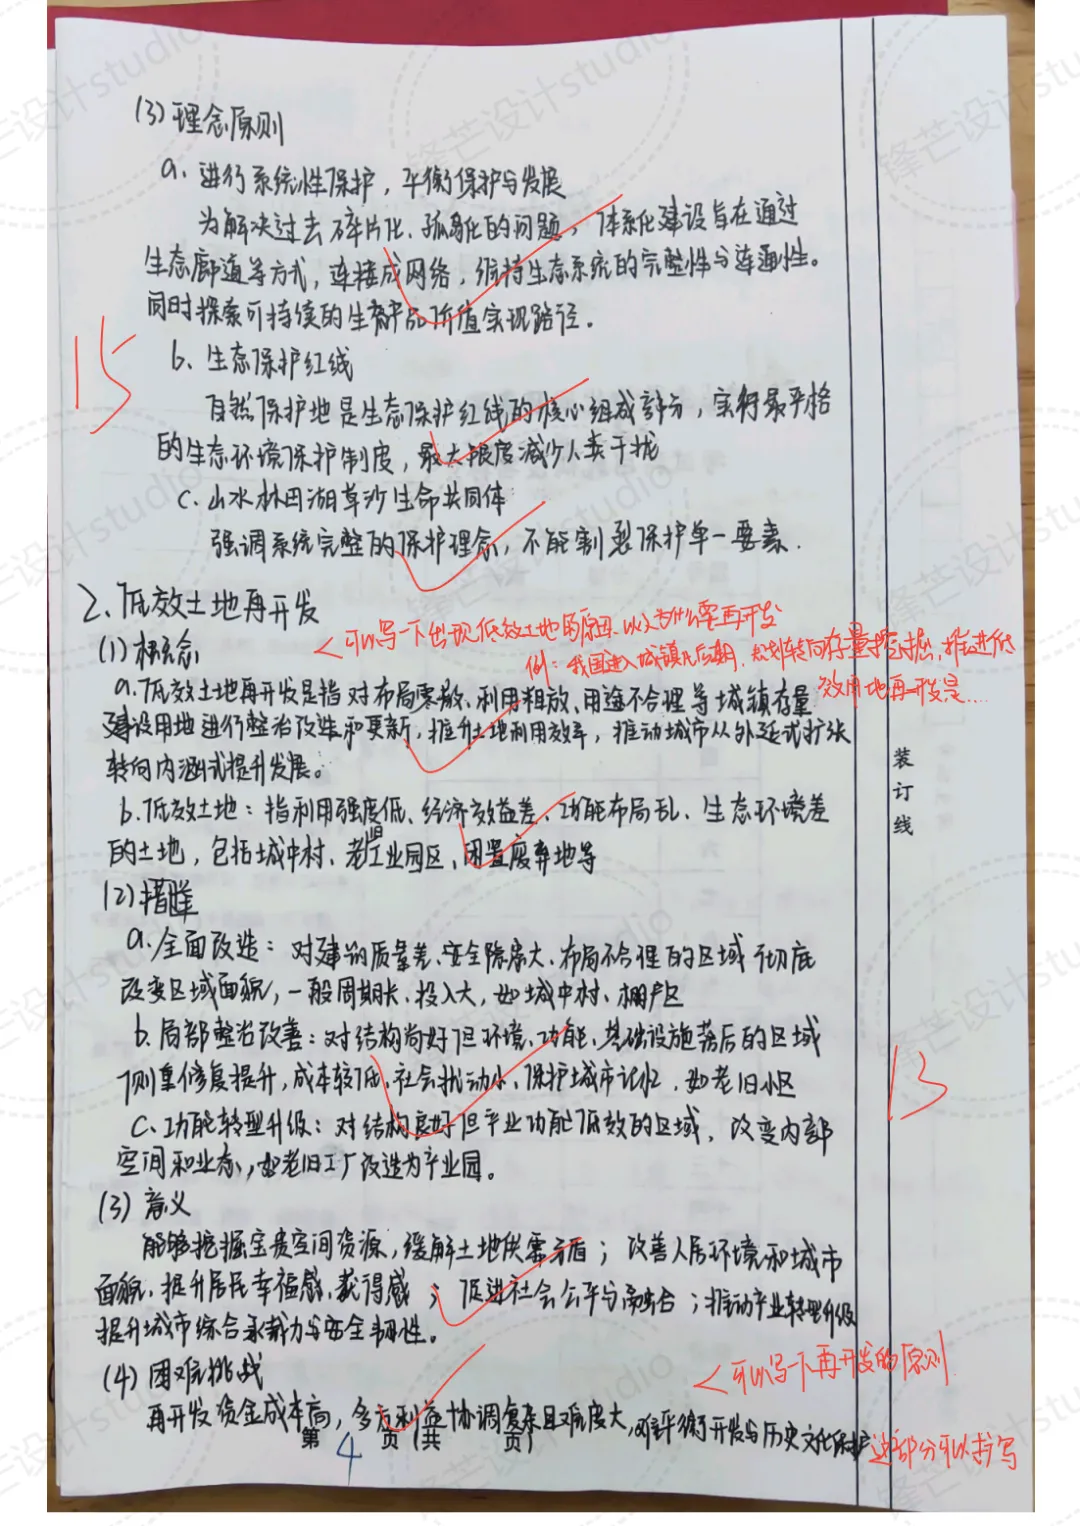 (3)理念原则
a. 进行系统性保护，平衡保护与发展
为解决过去碎片化、孤岛化的问题，体系化建设旨在通过
生态廊道等方式，连接成网络，维持生态系统的完整性与连通性。
同时探索可持续的生态产品价值实现路径。
15
b. 生态保护红线
自然保护地是生态保护红线的核心组成部分，实行最严格
的生态环境保护制度，最大限度减少人类干扰
c. 山水林田湖草沙生命共同体
强调系统完整的保护理念，不能割裂保护单一要素.
2、低效土地再开发
<可以写一下出现低效土地的原因，以及为什么要再开发
(1)概念
例：我国进入城镇化后期，规划转向存量挖掘，推进低
效用地再开发是...
a.低效土地再开发是指对布局零散、利用粗放、用途不合理等城镇存量
建设用地进行整治改造和更新，推升土地利用效率，推动城市从外延式扩张
转向内涵式提升发展。
b.低效土地：指利用强度低、经济效益差、功能布局乱、生态环境差
的土地，包括城中村、老旧工业园区、闲置废弃地等
(2)措施
a.全面改造：对建筑质量差、安全隐患大、布局不合理的区域彻底
改变区域面貌，一般周期长、投入大，如城中村、棚户区
b.局部整治改善：对结构尚好但环境、功能、基础设施落后的区域
侧重修复提升，成本较低、社会扰动小、保护城市记忆，如老旧小区
13
c、功能转型升级：对结构良好但产业功能低效的区域，改变内部
空间和业态，如老旧工厂改造为产业园。
(3) 意义
能够挖掘宝贵空间资源，缓解土地供需矛盾；改善人居环境和城市
面貌，提升居民幸福感、获得感；促进社会公平与融合；推动产业转型升级
提升城市综合承载力与安全韧性。
(4) 困难挑战
<可以写一下再开发的原则
再开发资金成本高，多方利益协调复杂且难度大，难平衡开发与历史文化保护
这部分可以扩写
第 4 页(共 页)
装订线
锋芒设计studio